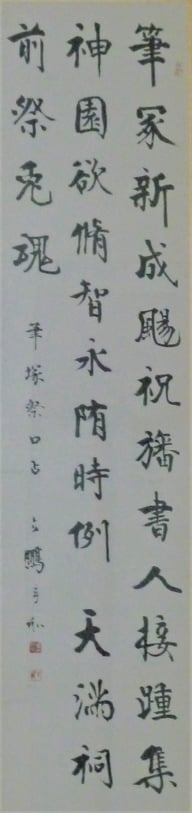 筆冢新成颺祝旛書人接踵集
神園欲脩智永隋時例 天満祠
前祭兎魂
筆塚祭口占 鵬